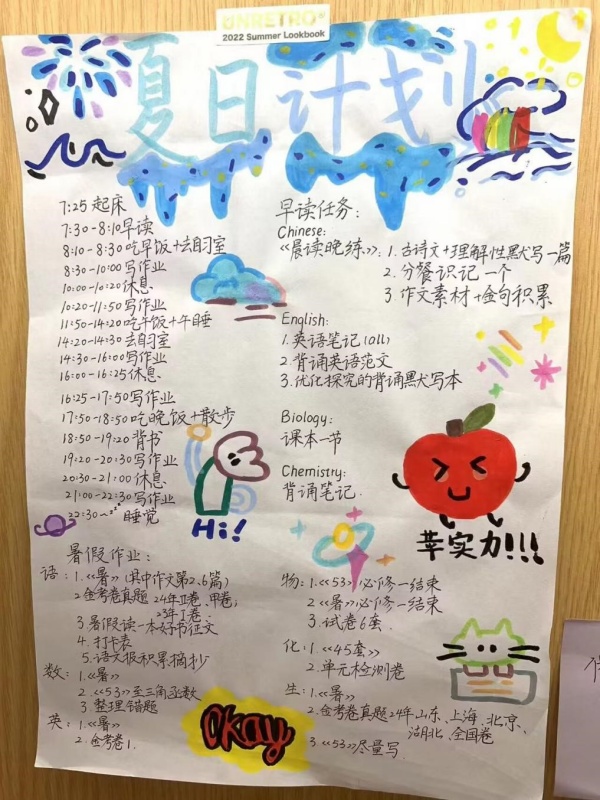 UNRETRO®
2022 Summer Lookbook
夏日计划
7:25 起床
7:30-8:10 早读
8:10-8:30 吃早饭+去自习室
8:30-10:00 写作业
10:00-10:20 休息
10:20-11:50 写作业
11:50-14:20 吃午饭+午睡
14:20-14:30 去自习室
14:30-16:00 写作业
16:00-16:25 休息
16:25-17:50 写作业
17:50-18:50 吃晚饭+散步
18:50-19:20 背书
19:20-20:30 写作业
20:30-21:00 休息
21:00-22:30 写作业
22:30~ 睡觉
早读任务:
Chinese:
《晨读晚练》: 1. 古诗文+理解性默写一篇
2. 分餐识记一个
3. 作文素材+金句积累
English:
1. 英语笔记(all)
2. 背诵英语范文
3. 优化探究的背诵默写本
Biology:
课本一节
Chemistry:
背诵笔记
Hi!
莘实力!!!
暑假作业:
语: 1.《暑》(其中作文第2、6篇)
2. 金考卷真题 24年Ⅱ卷、甲卷,
23年丁卷
3. 暑假读一本好书征文
4. 打卡表
5. 语文报积累摘抄
数: 1.《暑》
2.《53》至三角函数
3 整理错题
英: 1.《暑》
2. 金考卷1.
Okay
物: 1.《53》必修一结束
2.《暑》必修一结束
3. 试卷6张
化: 1.《45套》
2. 单元检测卷
生: 1.《暑》
2. 金考卷真题24年山东、上海、北京、
湖北、全国卷
3 《53》尽量写